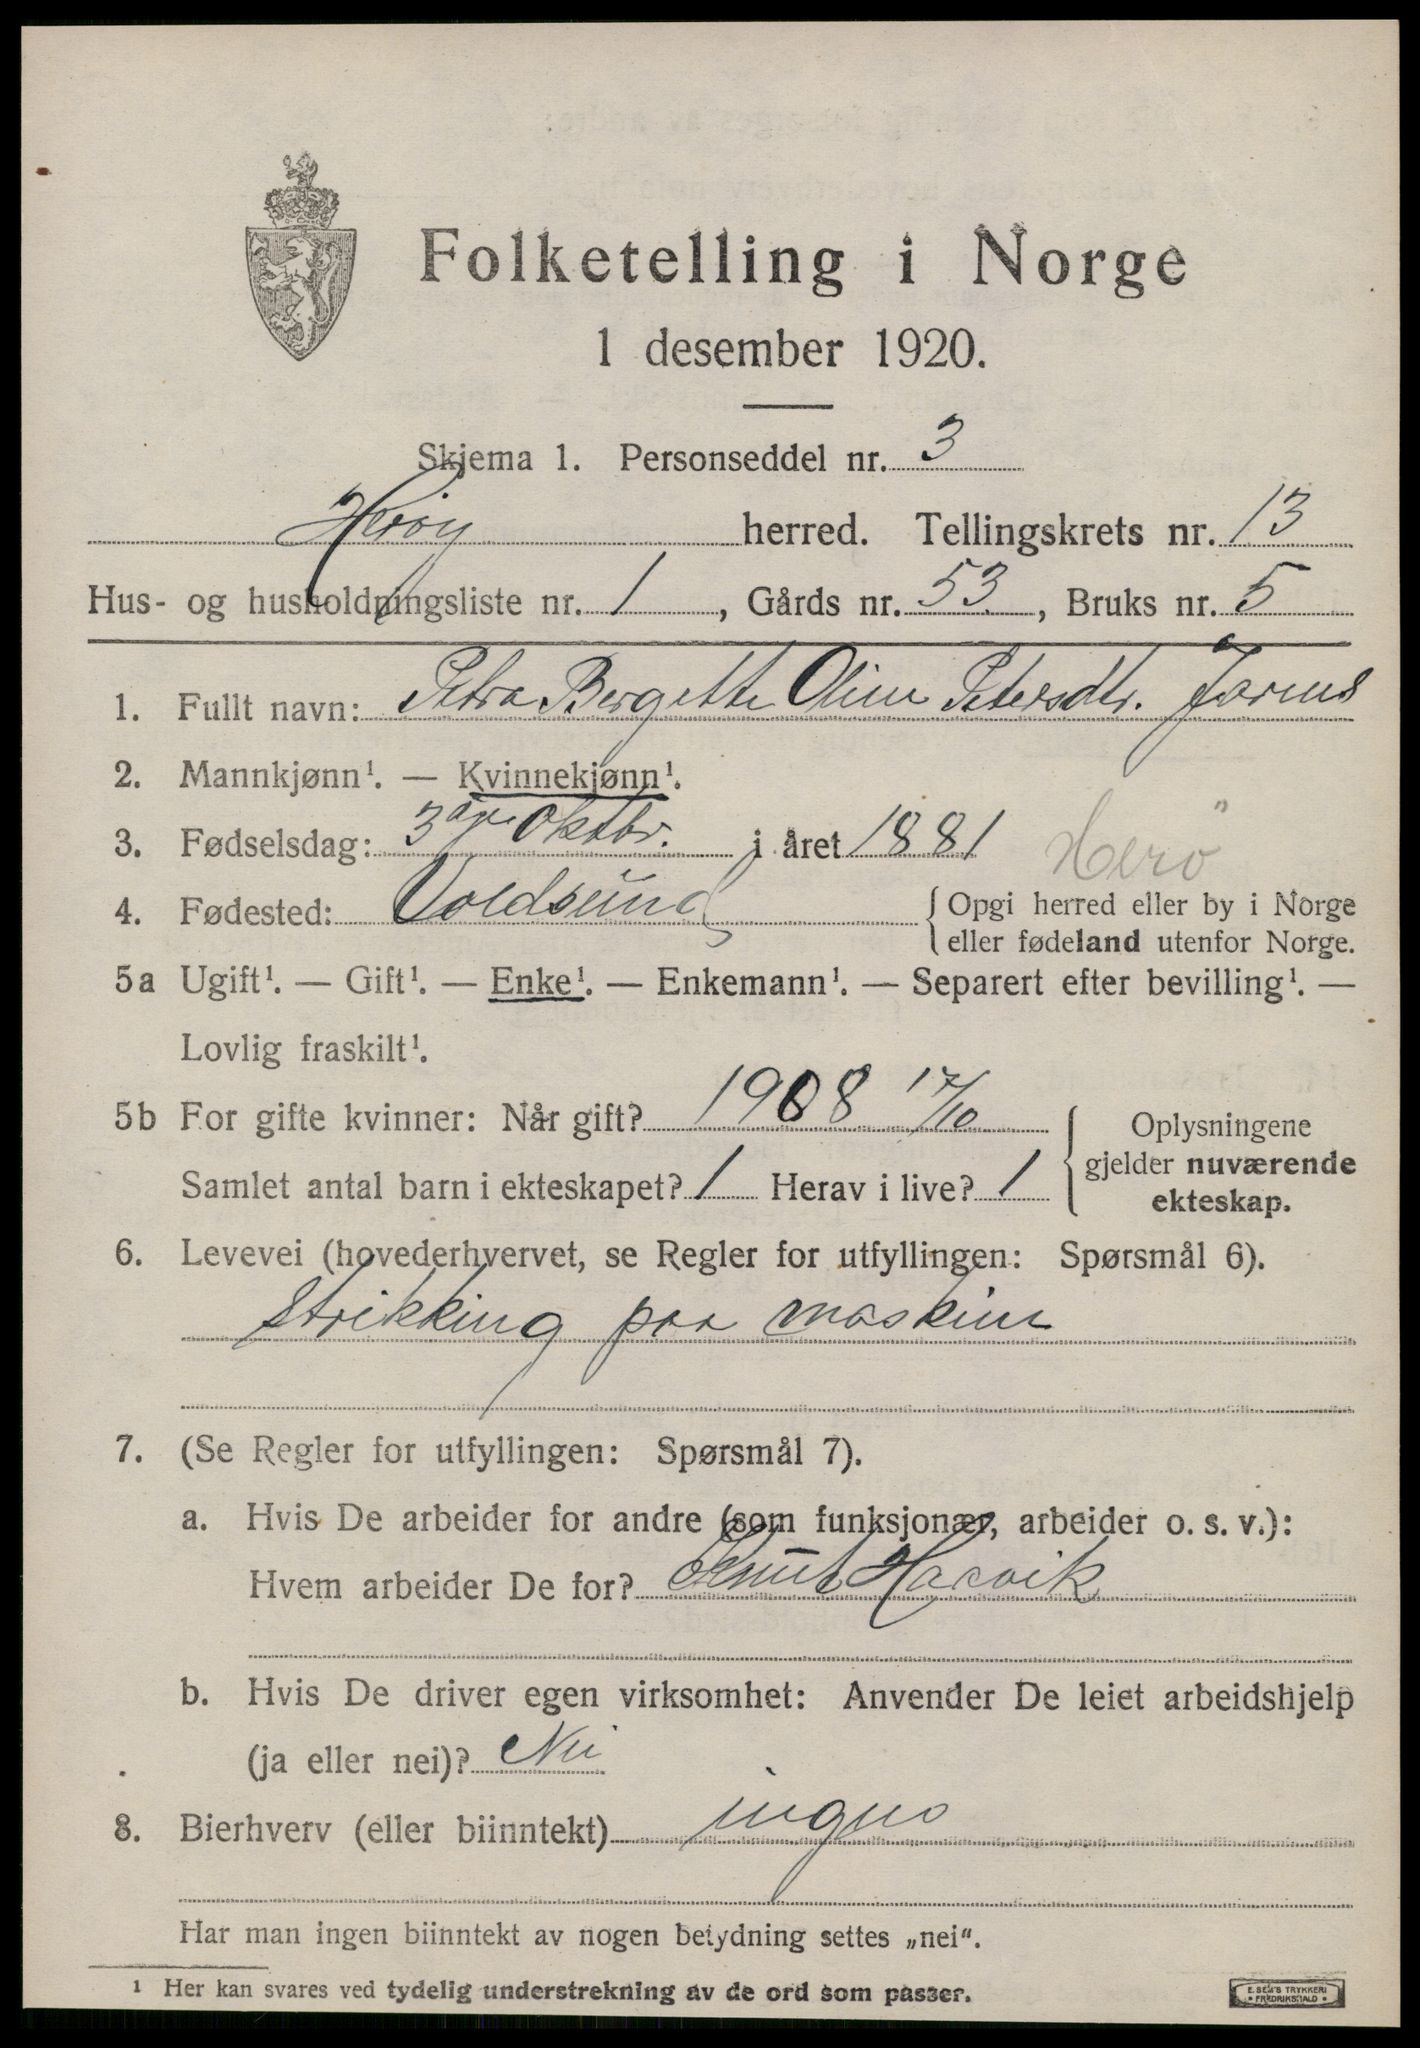 Folketelling i Norge
1 desember 1920.
Skjema 1. Personseddel nr. 3
Herøy herred. Tellingskrets nr. 13
Hus- og husholdningsliste nr. 1, Gårds nr. 53, Bruks nr. 5
1. Fullt navn: Petra Bergette Oline Petersdtr.
2. Mannkjønn¹. — Kvinnekjønn¹.
3. Fødselsdag: 3 Oktbr. i året 1881 Herö
4. Fødested: Voldsund { Opgi herred eller by i Norge
eller fødeland utenfor Norge.
5a Ugift¹. — Gift¹. — Enke¹. — Enkemann¹. — Separert efter bevilling¹. —
Lovlig fraskilt¹.
5b For gifte kvinner: Når gift? 1908 17/10 { Oplysningene
gjelder nuværende
Samlet antal barn i ekteskapet? 1 Herav i live? 1 ekteskap.
6. Levevei (hovederhvervet, se Regler for utfyllingen: Spørsmål 6).
strikking paa maskine
7. (Se Regler for utfyllingen: Spørsmål 7).
a. Hvis De arbeider for andre (som funksjonær, arbeider o. s. v.):
Hvem arbeider De for? Knut
b. Hvis De driver egen virksomhet: Anvender De leiet arbeidshjelp
(ja eller nei)? Nei
8. Bierhverv (eller biinntekt)
Har man ingen biinntekt av nogen betydning settes „nei".
¹ Her kan svares ved tydelig understrekning av de ord som passer.
E. SEM'S TRYKKERI
FREDRIKSHALD